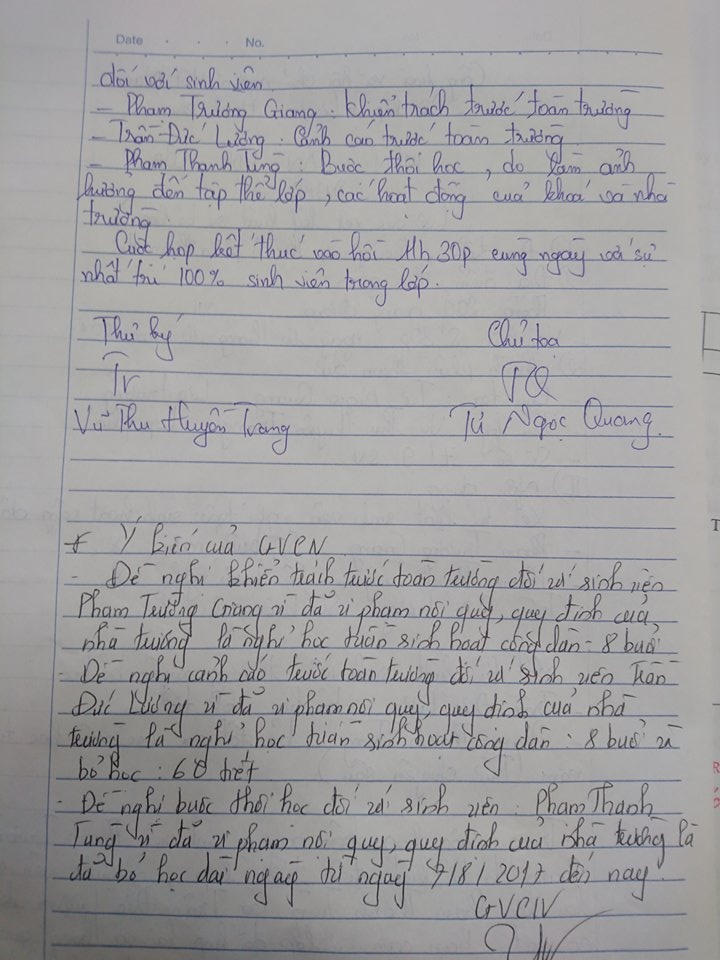 Date . . . No.
đối với sinh viên.
- Phạm Trường Giang : Khiển trách trước toàn trường
- Trần Đức Lương : Cảnh cáo trước toàn trường
- Phạm Thanh Tùng : Buộc thôi học, do làm ảnh
hưởng đến tập thể lớp, các hoạt động của khoa và nhà
trường.
Cuộc họp kết thúc vào hồi 11h30p cùng ngày với sự
nhất trí 100% sinh viên trong lớp.
Thư ký Chủ toạ
Tr TQ
Vũ Thu Huyền Trang Từ Ngọc Quang.
* Ý kiến của GVCN
- Đề nghị khiển trách trước toàn trường đối với sinh viên
Phạm Trường Giang vì đã vi phạm nội quy, quy định của
nhà trường là nghỉ học tuần sinh hoạt công dân : 8 buổi
- Đề nghị cảnh cáo trước toàn trường đối với sinh viên Trần
Đức Lương vì đã vi phạm nội quy, quy định của nhà
trường là nghỉ học tuần sinh hoạt công dân : 8 buổi và
bỏ học : 68 tiết
- Đề nghị buộc thôi học đối với sinh viên : Phạm Thanh
Tùng vì đã vi phạm nội quy, quy định của nhà trường là
đã bỏ học dài ngày từ ngày 7/8/2017 đến nay.
GVCN